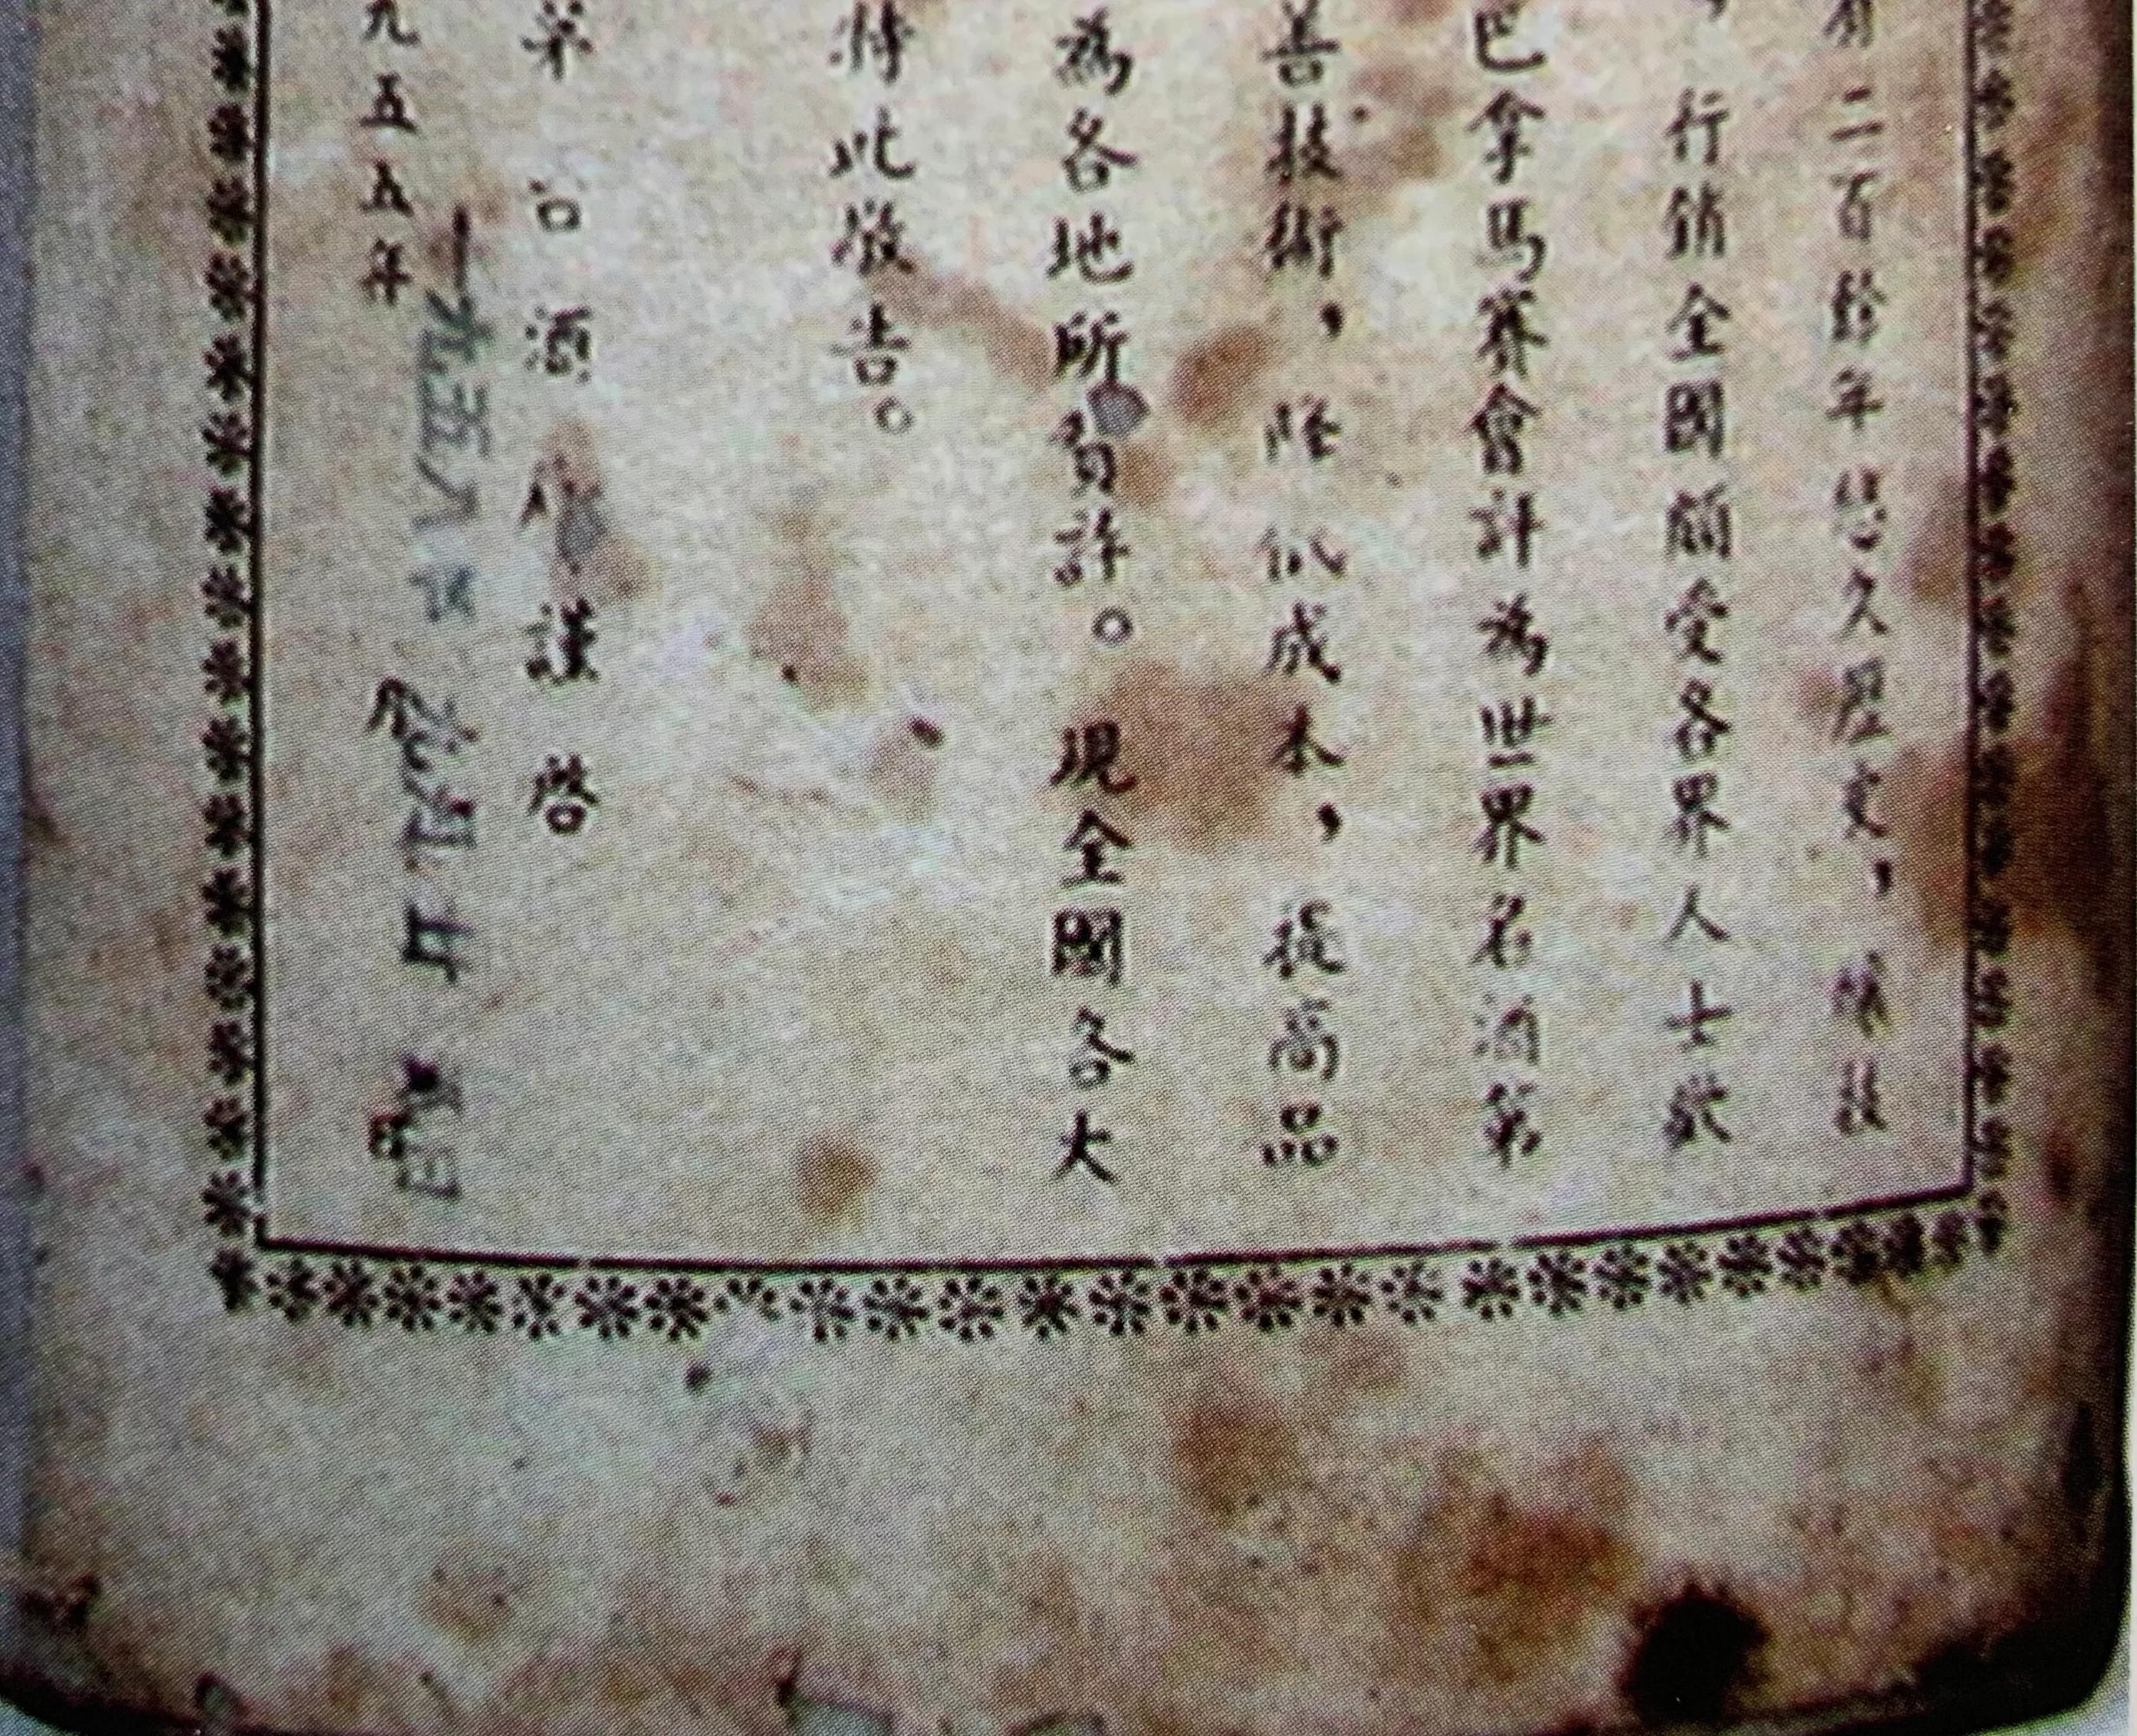 有二百餘年悠久歷史，釀技
，行銷全國頗受各界人士歡
巴拿馬賽會評為世界名酒第
善技術，降低成本，提高品
為各地所贊許。現全國各大
特此敬告。
茅台酒 謹啓
九五五年
一九五八